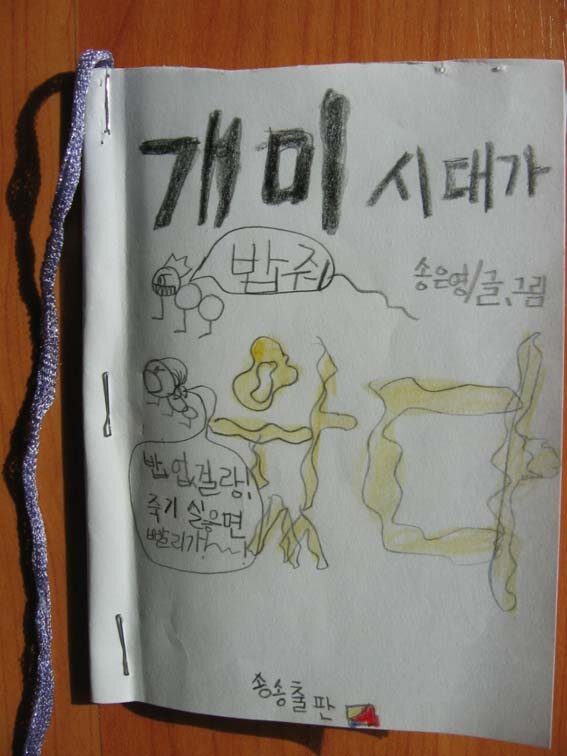 개미 시대가
밥줘
송은영/글, 그림
왔다
밥, 없걸랑!
죽기 싫으면
빨리가!~~!
송송출판